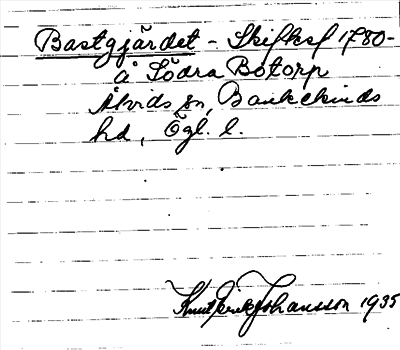 Bastgjärdet - Skifksf 1780-
å Södra Botorp
Åtvids sn, Bankekinds
hd, Ögl. l.
Knut Erik Johansson 1935